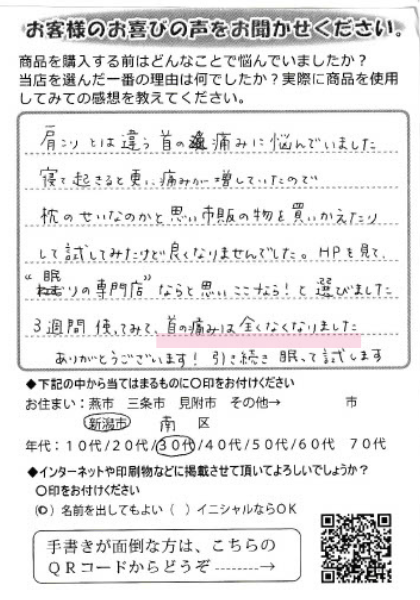 お客様のお喜びの声をお聞かせください。
商品を購入する前はどんなことで悩んでいましたか？
当店を選んだ一番の理由は何でしたか？実際に商品を使用
してみての感想を教えてください。
肩こりとは違う首の痛みに悩んでいました
寝て起きると更に痛みが増していたので
枕のせいなのかと思い市販の物を買いかえたり
して試してみたけど良くなりませんでした。HPを見て、
“眠りの専門店”ならと思いここなら！と選びました
3週間使ってみて、首の痛みは全くなくなりました
ありがとうございます！引き続き眠って試します
◆下記の中から当てはまるものに〇印をお付けください
お住まい：燕市 三条市 見附市 その他→ 市
新潟市 南 区
年代：１０代/２０代/３０代/４０代/５０代/６０代 ７０代
◆インターネットや印刷物などに掲載させて頂いてよろしいでしょうか？
〇印をお付けください
（〇）名前を出してもよい（ ）イニシャルならＯＫ
手書きが面倒な方は、こちらの
ＱＲコードからどうぞ--------→